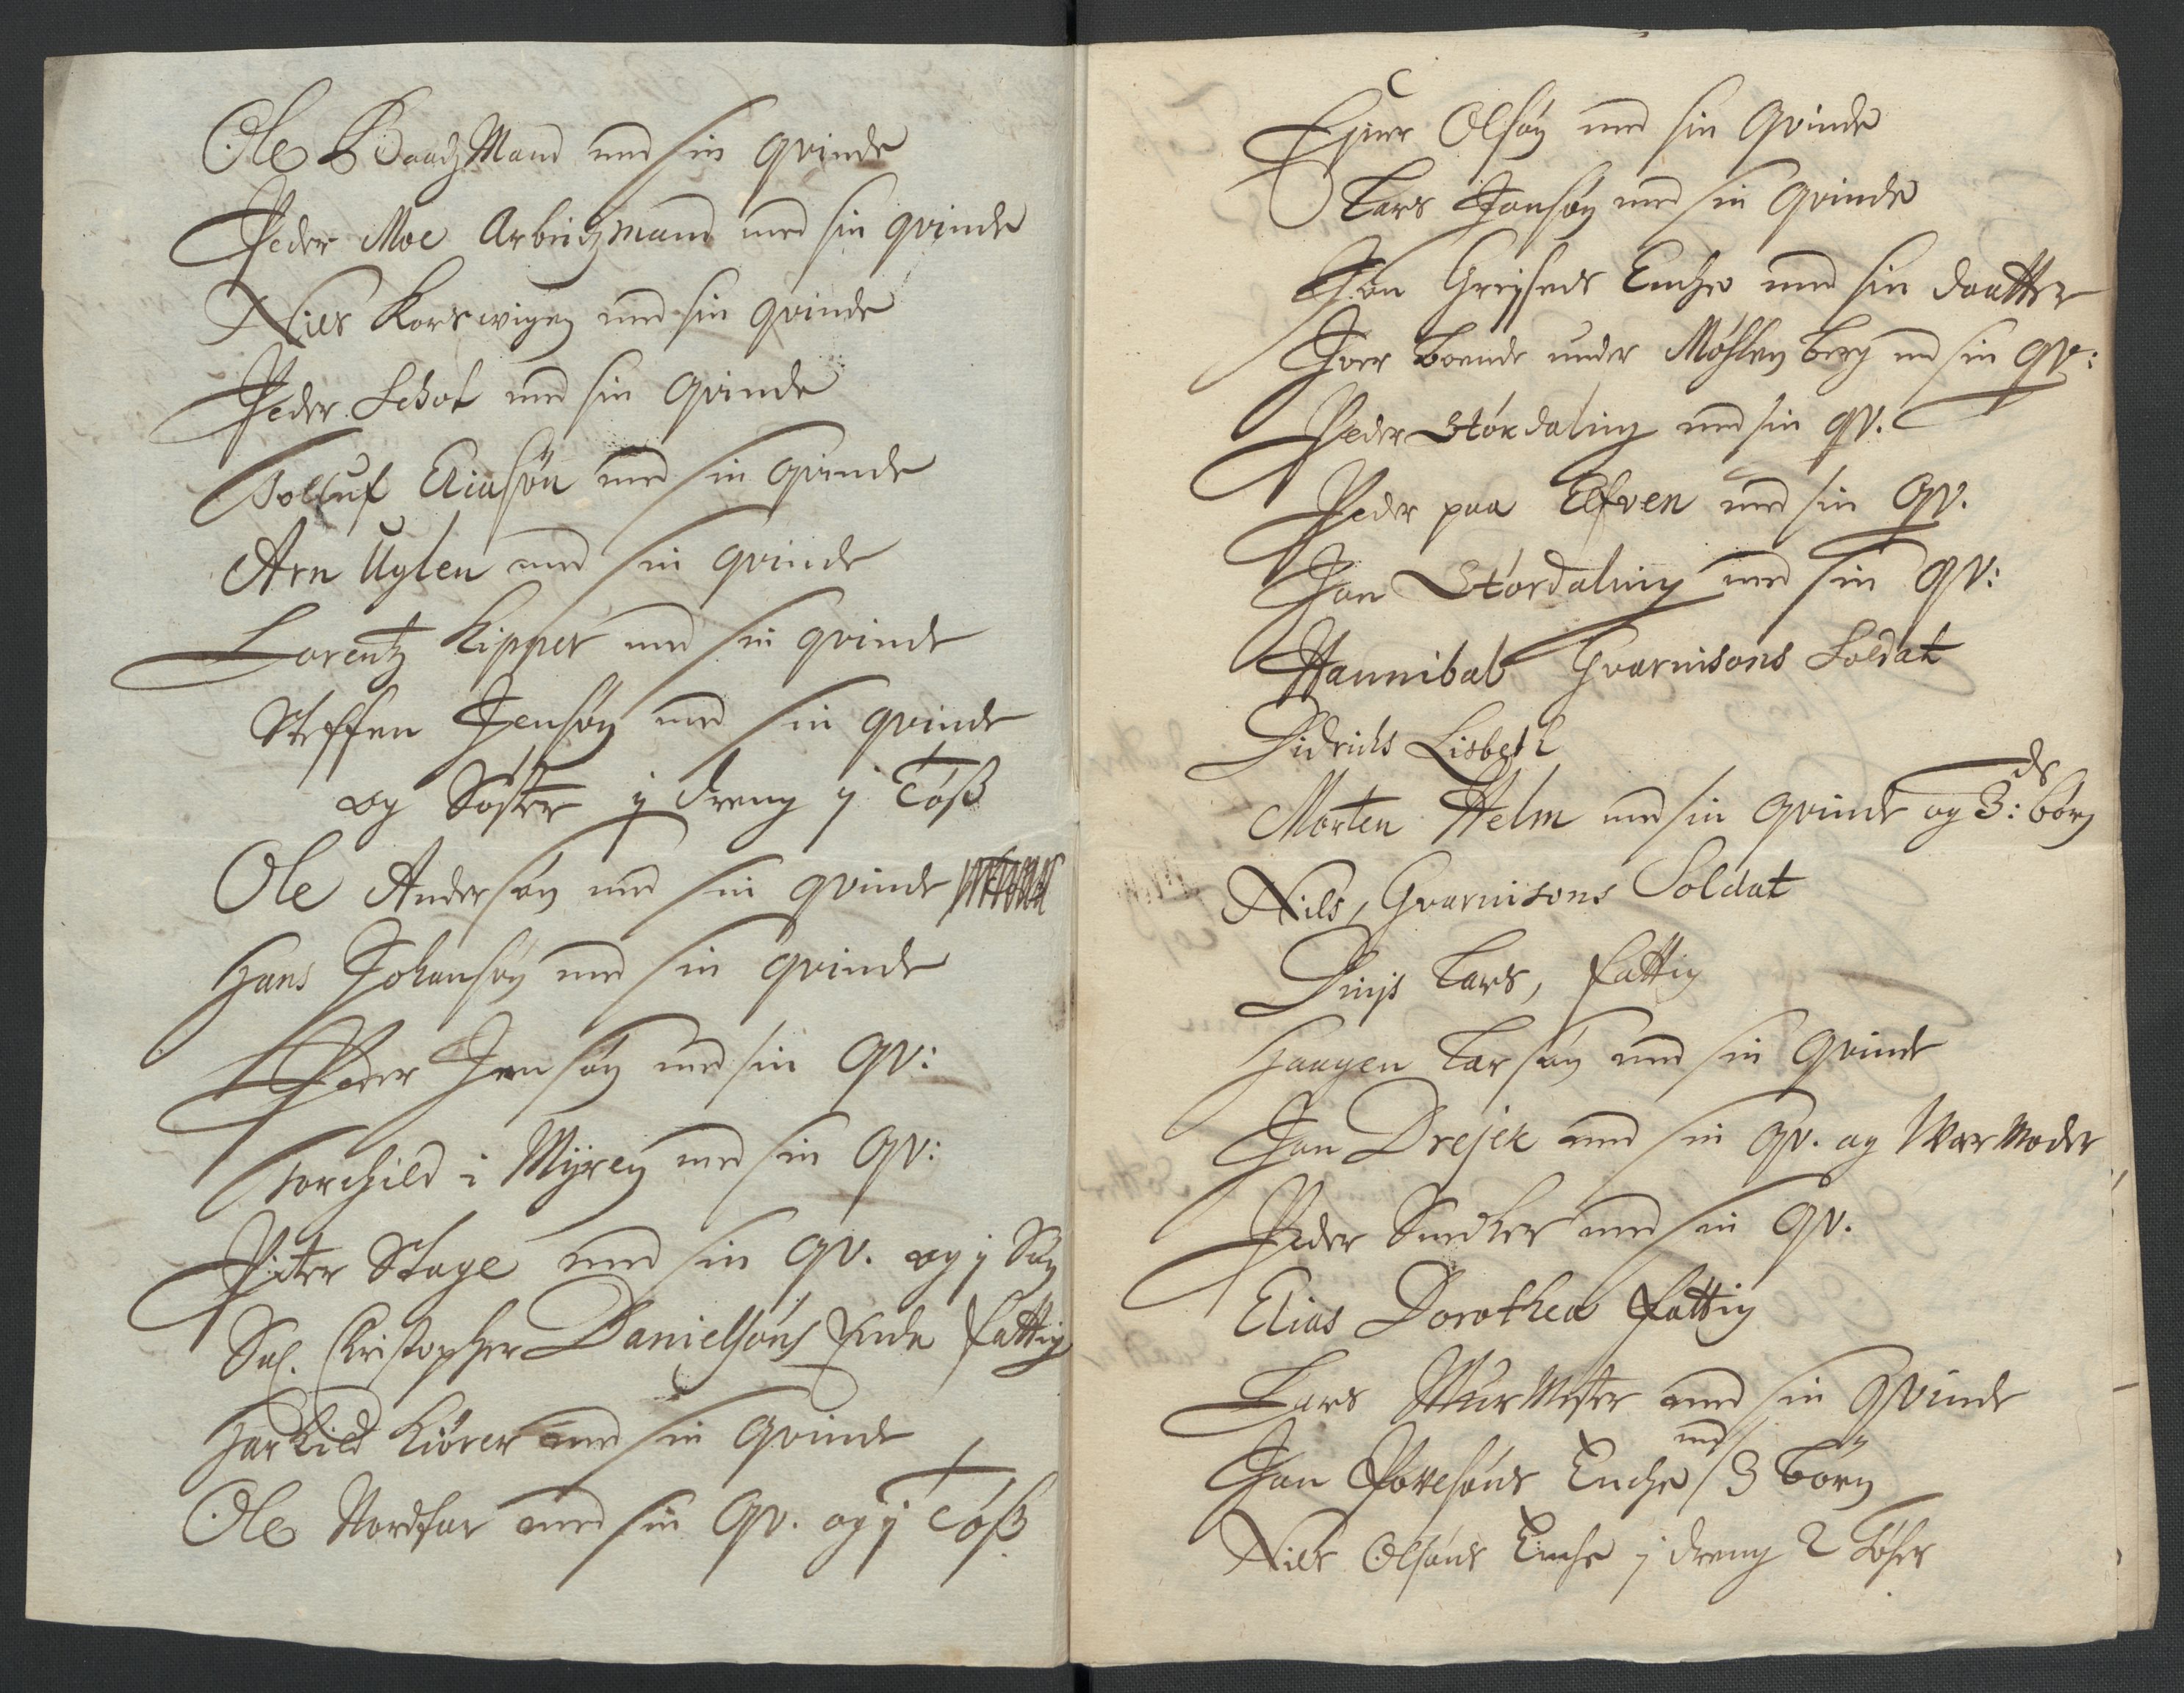 Ole BaadzMand med sin qvinde
Peder Moe Arbeidzmand med sin qvinde
Niels Korswigen med sin qvinde
Peder Schot med sin qvinde
Tolluf Eliasøn med sin qvinde
Arn Uglen med sin qvinde
Lorentz Kipper med sin qvinde
Steffen Jensøn med sin qvinde
og Søster j dreng j Tøß
Ole Andersøn med sin qvinde
Hans Johansøn med sin qvinde
Peder Jensøn med sin qv:
Torchild i Myren med sin qv:
Piter Stage med sin qv. og j Søn
Sal. Christopher Danielsøns Enke fattig
Harkild Kiører med sin Qvinde
Ole Nordfar med sin Qv. og j Tøß
Ejner Olsøn med sin Qvinde
Lars Jonsøn med sin Qvinde
Jon Greysens Enche med sin daatter
Iver boende under Møhlenberg med sin qv:
Peder Størdaling med sin qv.
Peder paa Elfven med sin Qv.
Jon Størdaling med sin qv:
Hannibal Gvarnisons Soldat
Didrichs Lisbeth
Morten Helm med sin Qvinde og 3: ds børn
Nils, Gvarnisons Soldat
Lars, fattig
Haagen Larsøn med sin Qvinde
Jon Drejer med sin qv. og WarModer
Peder Snedker med sin Qv.
Elias Dorothea fattig
Lars MurMester med sin Qvinde
Jon Povelsøns Enche med 3 børn
Niels Olsøns Enche j dreng 2 Tøser